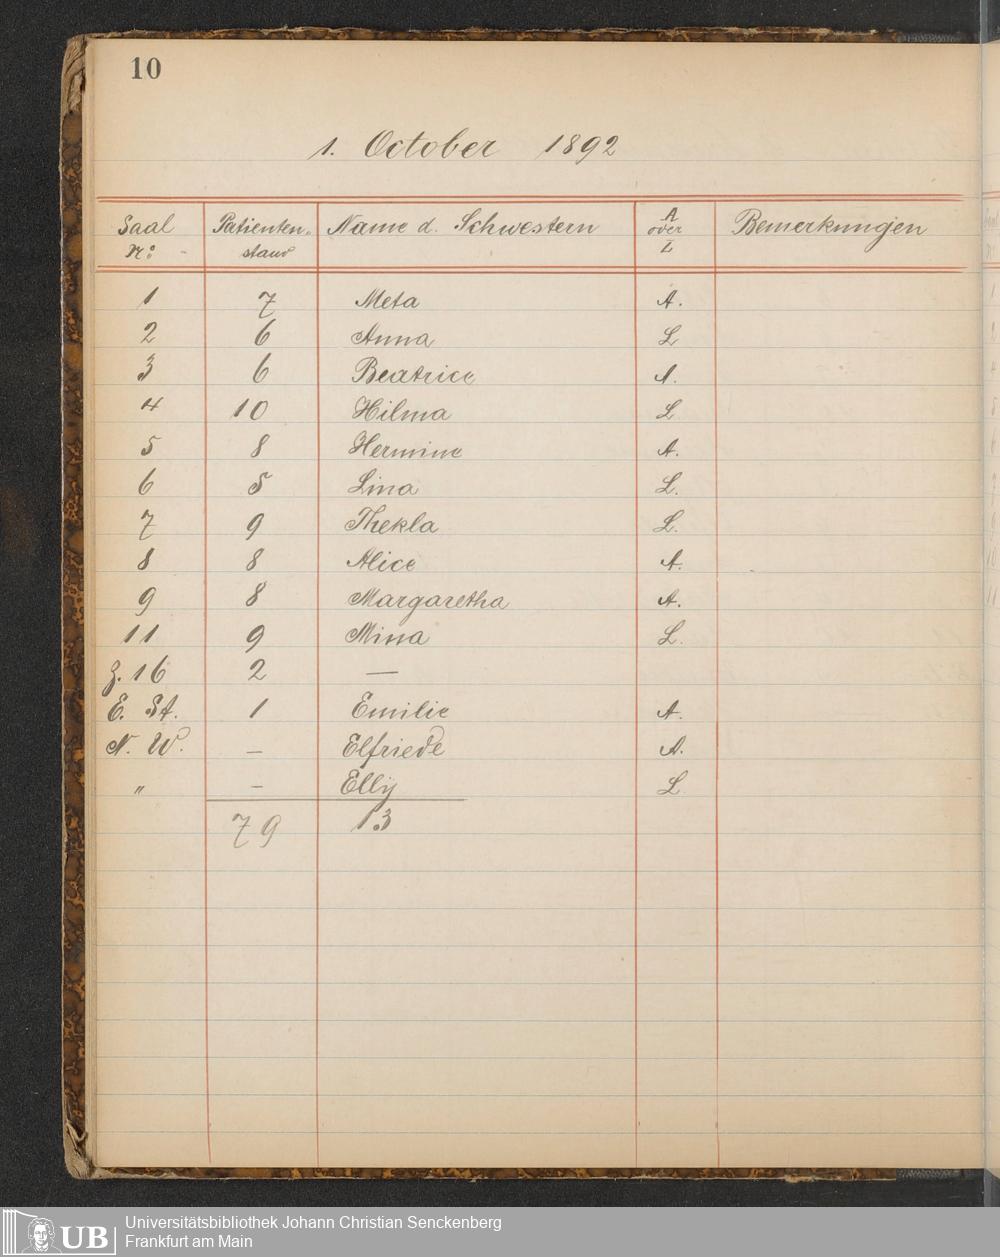 10
1. October 1892
Saal No: Patientenstand Name d. Schwestern A oder L Bemerkungen
1 7 Meta A.
2 6 Anna L
3 6 Beatrice A.
4 10 Hilma L
5 8 Hermine A.
6 5 Lina L.
7 9 Thekla L.
8 8 Alice A.
9 8 Margaretha A.
11 9 Mina L.
Z. 16 2 —
E. St. 1 Emilie A.
N. W. — Elfriede A.
" — Elly L
79 13
UB Universitätsbibliothek Johann Christian Senckenberg
Frankfurt am Main